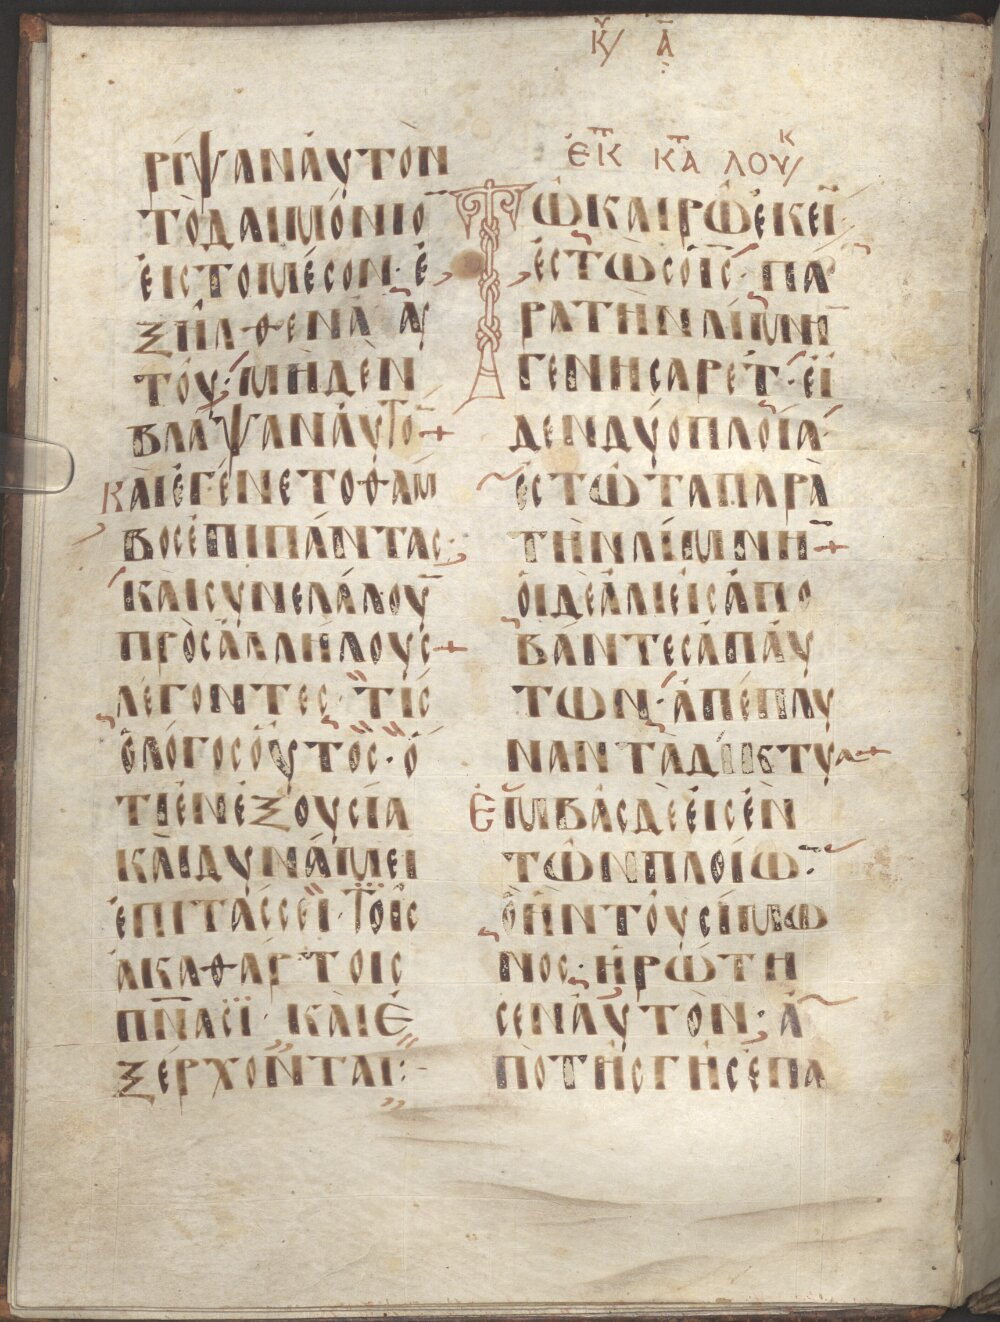 Κ̆/ Α̅
ΡΙΨΑΝΑΥΤΟΝ
ΤΟΔΑΙΜΟΝΙΟ̅
ΕΙСΤΟΜΕСΟΝ· Ε
ΞΗΛΘΕΝΑΠΑΥ
ΤΟΥ· ΜΗΔΕΝ
ΒΛΑΨΑΝΑΥΤΟ̅+
ΚΑΙΕΓΕΝΕΤΟΘΑΜ
ΒΟСΕΠΙΠΑΝΤΑС·
ΚΑΙСΥΝΕΛΑΛΟΥ̅
ΠΡΟСΑΛΛΗΛΟΥС+
ΛΕΓΟΝΤΕС· ΤΙС
ΟΛΟΓΟСΟΥΤΟС· Ο
ΤΙΕΝΕΞΟΥСΙΑ
ΚΑΙΔΥΝΑΜΕΙ
ΕΠΙΤΑССΕΙ· ΤΟΙС
ΑΚΑΘΑΡΤΟΙС
Π̅Ν̅ΑСΙ· ΚΑΙΕ
ΞΕΡΧΟΝΤΑΙ:-
ΕΚ̅ Κ̅Α ΛΟΥΚ/
ΤΩΚΑΙΡΩΕΚΕΙ̅
ΕСΤΩСΟΙ̅С̅· ΠΑ
ΡΑΤΗΝΛΙΜΝΗ̅
ΓΕΝΗСΑΡΕΤ· ΕΙ
ΔΕΝΔΥΟΠΛΟΙΑ·
ΕСΤΩΤΑΠΑΡΑ
ΤΗΝΛΙΜΝΗ̅+
ΟΙΔΕΑΛΙΕΙСΑΠΟ
ΒΑΝΤΕСΑΠΑΥ
ΤΩΝ· ΑΠΕΠΛΥ
ΝΑΝΤΑΔΙΚΤΥΑ+
ΕΜΒΑСΔΕΕΙСΕΝ
ΤΩΝΠΛΟΙΩ̅·
ΟΗΝΤΟΥСΙΜΩ
ΝΟС· ΗΡΩΤΗ
СΕΝΑΥΤΟΝ· Α
ΠΟΤΗСΓΗСΕΠΑ